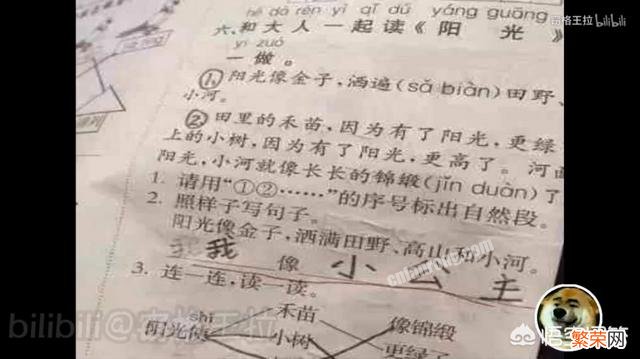 奇格王拉 bilibili
hé dà rén yì qǐ dú yáng guāng
六、和大人一起读《阳光》
yi zuò
一做。
①阳光像金子，洒遍(sǎ biàn)田野、
小河。
②田里的禾苗，因为有了阳光，更绿
上的小树，因为有了阳光，更高了。河面
阳光，小河就像长长的锦缎(jǐn duàn)了
1. 请用“①②……”的序号标出自然段。
2. 照样子写句子。
阳光像金子，洒满田野、高山和小河。
我 像 小公主
3. 连一连，读一读。
shǐ
阳光使 禾苗 像锦缎
小树 更绿了
bilibili@奇格王拉
悟空问答
繁荣网